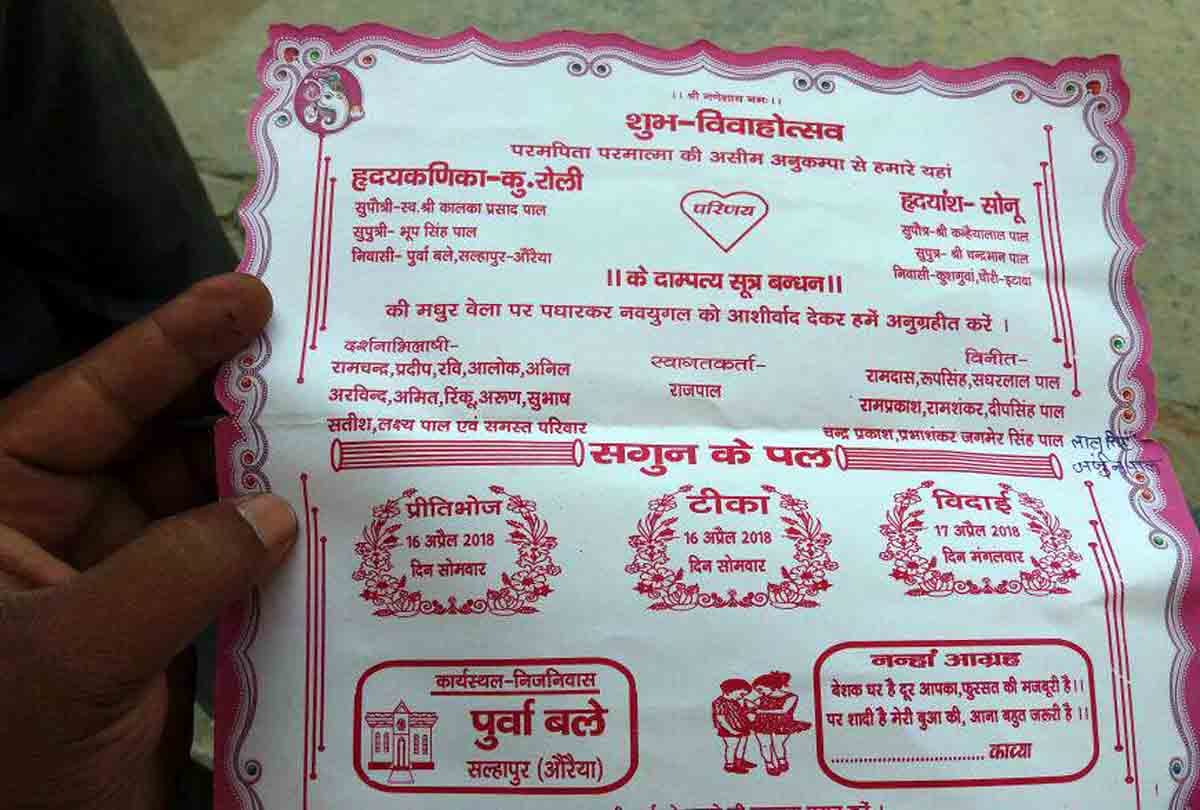 ।। श्री गणेशाय नमः ।।
शुभ-विवाहोत्सव
परमपिता परमात्मा की असीम अनुकम्पा से हमारे यहां
हृदयकणिका-कु.रोली
सुपौत्री-स्व.श्री कालका प्रसाद पाल
सुपुत्री- भूप सिंह पाल
निवासी- पुर्वा बले,सल्हापुर-औरैया
परिणय
हृदयांश- सोनू
सुपौत्र-श्री कन्हैयालाल पाल
सुपुत्र- श्री चन्द्रभान पाल
निवासी-कुशगुवां,घौरी-इटावा
।। के दाम्पत्य सूत्र बन्धन।।
की मधुर वेला पर पधारकर नवयुगल को आशीर्वाद देकर हमें अनुग्रहीत करें ।
दर्शनाभिलाषी-
रामचन्द्र,प्रदीप,रवि,आलोक,अनिल
अरविन्द,अमित,रिंकू,अरुण,सुभाष
सतीश,लक्ष्य पाल एवं समस्त परिवार
स्वागतकर्ता-
राजपाल
विनीत-
रामदास,रुपसिंह,सघरलाल पाल
रामप्रकाश,रामशंकर,दीपसिंह पाल
चन्द्र प्रकाश,प्रभाशंकर जगमेर सिंह पाल
सगुन के पल
प्रीतिभोज
16 अप्रैल 2018
दिन सोमवार
टीका
16 अप्रैल 2018
दिन सोमवार
विदाई
17 अप्रैल 2018
दिन मंगलवार
कार्यस्थल-निजनिवास
पुर्वा बले
सल्हापुर (औरैया)
नन्हां आग्रह
बेशक घर है दूर आपका,फुरसत की मजबूरी है।।
पर शादी है मेरी बुआ की, आना बहुत जरूरी है ।।
.................................. काव्या